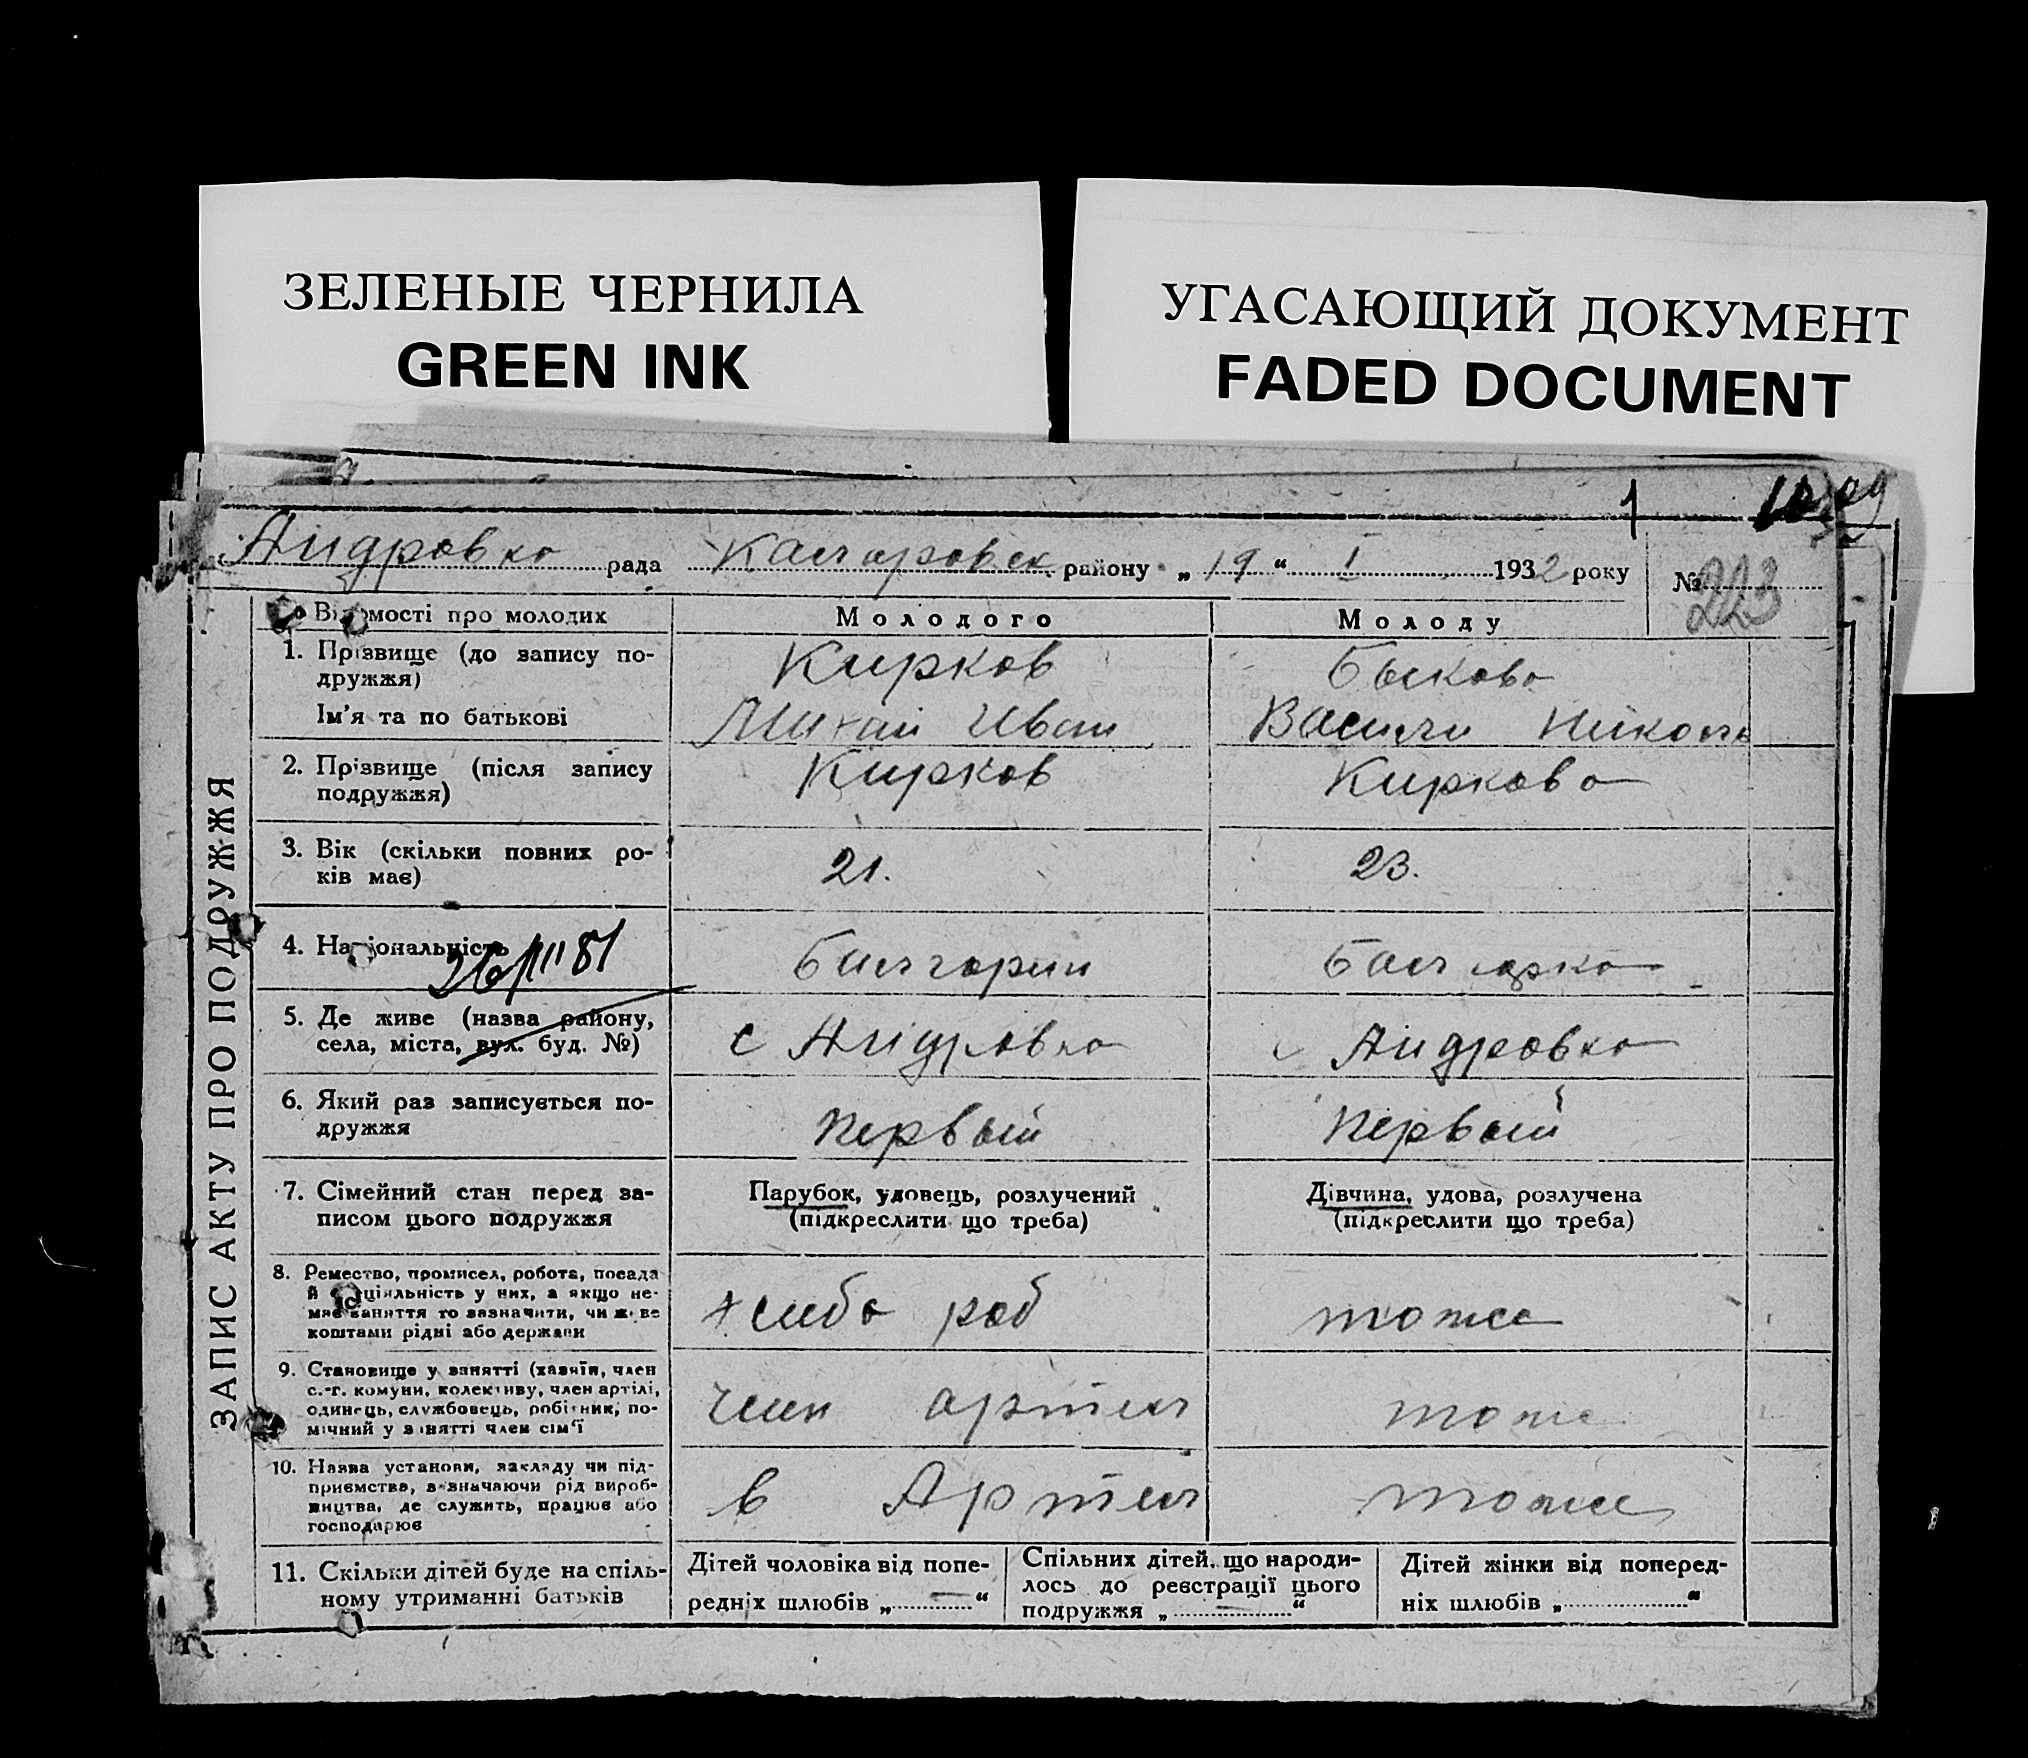 ЗЕЛЕНЫЕ ЧЕРНИЛА
GREEN INK
УГАСАЮЩИЙ ДОКУМЕНТ
FADED DOCUMENT
1
Андровка рада районy „19“ I 1932 року № 223
ЗАПИС АКТУ ПРО ПОДРУЖЖЯ
Відомості про молодих Молодого Молоду
1. Прізвище (до запису по- Кирков Быкова
дружжя)
Ім'я та по батькові Иван
2. Прізвище (після запису Кирков Киркова
подружжя)
3. Вік (скільки повних ро- 21. 23.
ків має)
4. Національність
5. Де живе (назва району, с Андровка с Андровка
села, міста, вул. буд. №)
6. Який раз записується по- первый первый
дружжя
7. Сімейний стан перед за- Парубок, удовець, розлучений Дівчина, удова, розлучена
писом цього подружжя (підкреслити що треба) (підкреслити що треба)
8. Ремество, промисел, робота, посада
й спеціяльність у них, а якщо не-
має заняття то зазначити, чи живе хлебо роб тоже
коштами рідні або держави
9. Становище у занятті (хазяїн, член
с.-г. комуни, колективу, член артілі, член артел тоже
одинець, службовець, робітник, по-
мічний у занятті член сім'ї
10. Назва установи, закладу чи під-
приємства, зазначаючи рід вироб- в Артел тоже
ництва, де служить, працює або
господарює
11. Скільки дітей буде на спіль-
ному утриманні батьків
Дітей чоловіка від попе-
редніх шлюбів „—“
Спільних дітей, що народи-
лось до реєстрації цього
подружжя „—“
Дітей жінки від поперед-
ніх шлюбів „ “